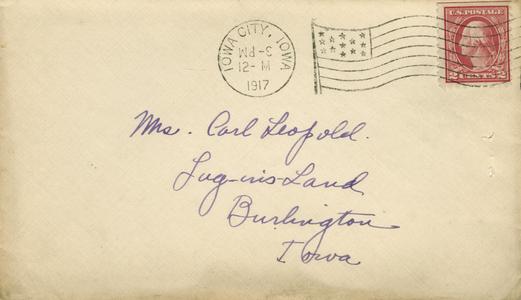 IOWA CITY, IOWA
3-PM
12-M
1917
U.S. POSTAGE
2 CENTS 2
Mrs. Carl Leopold.
Lug-ins-Land
Burlington
Iowa